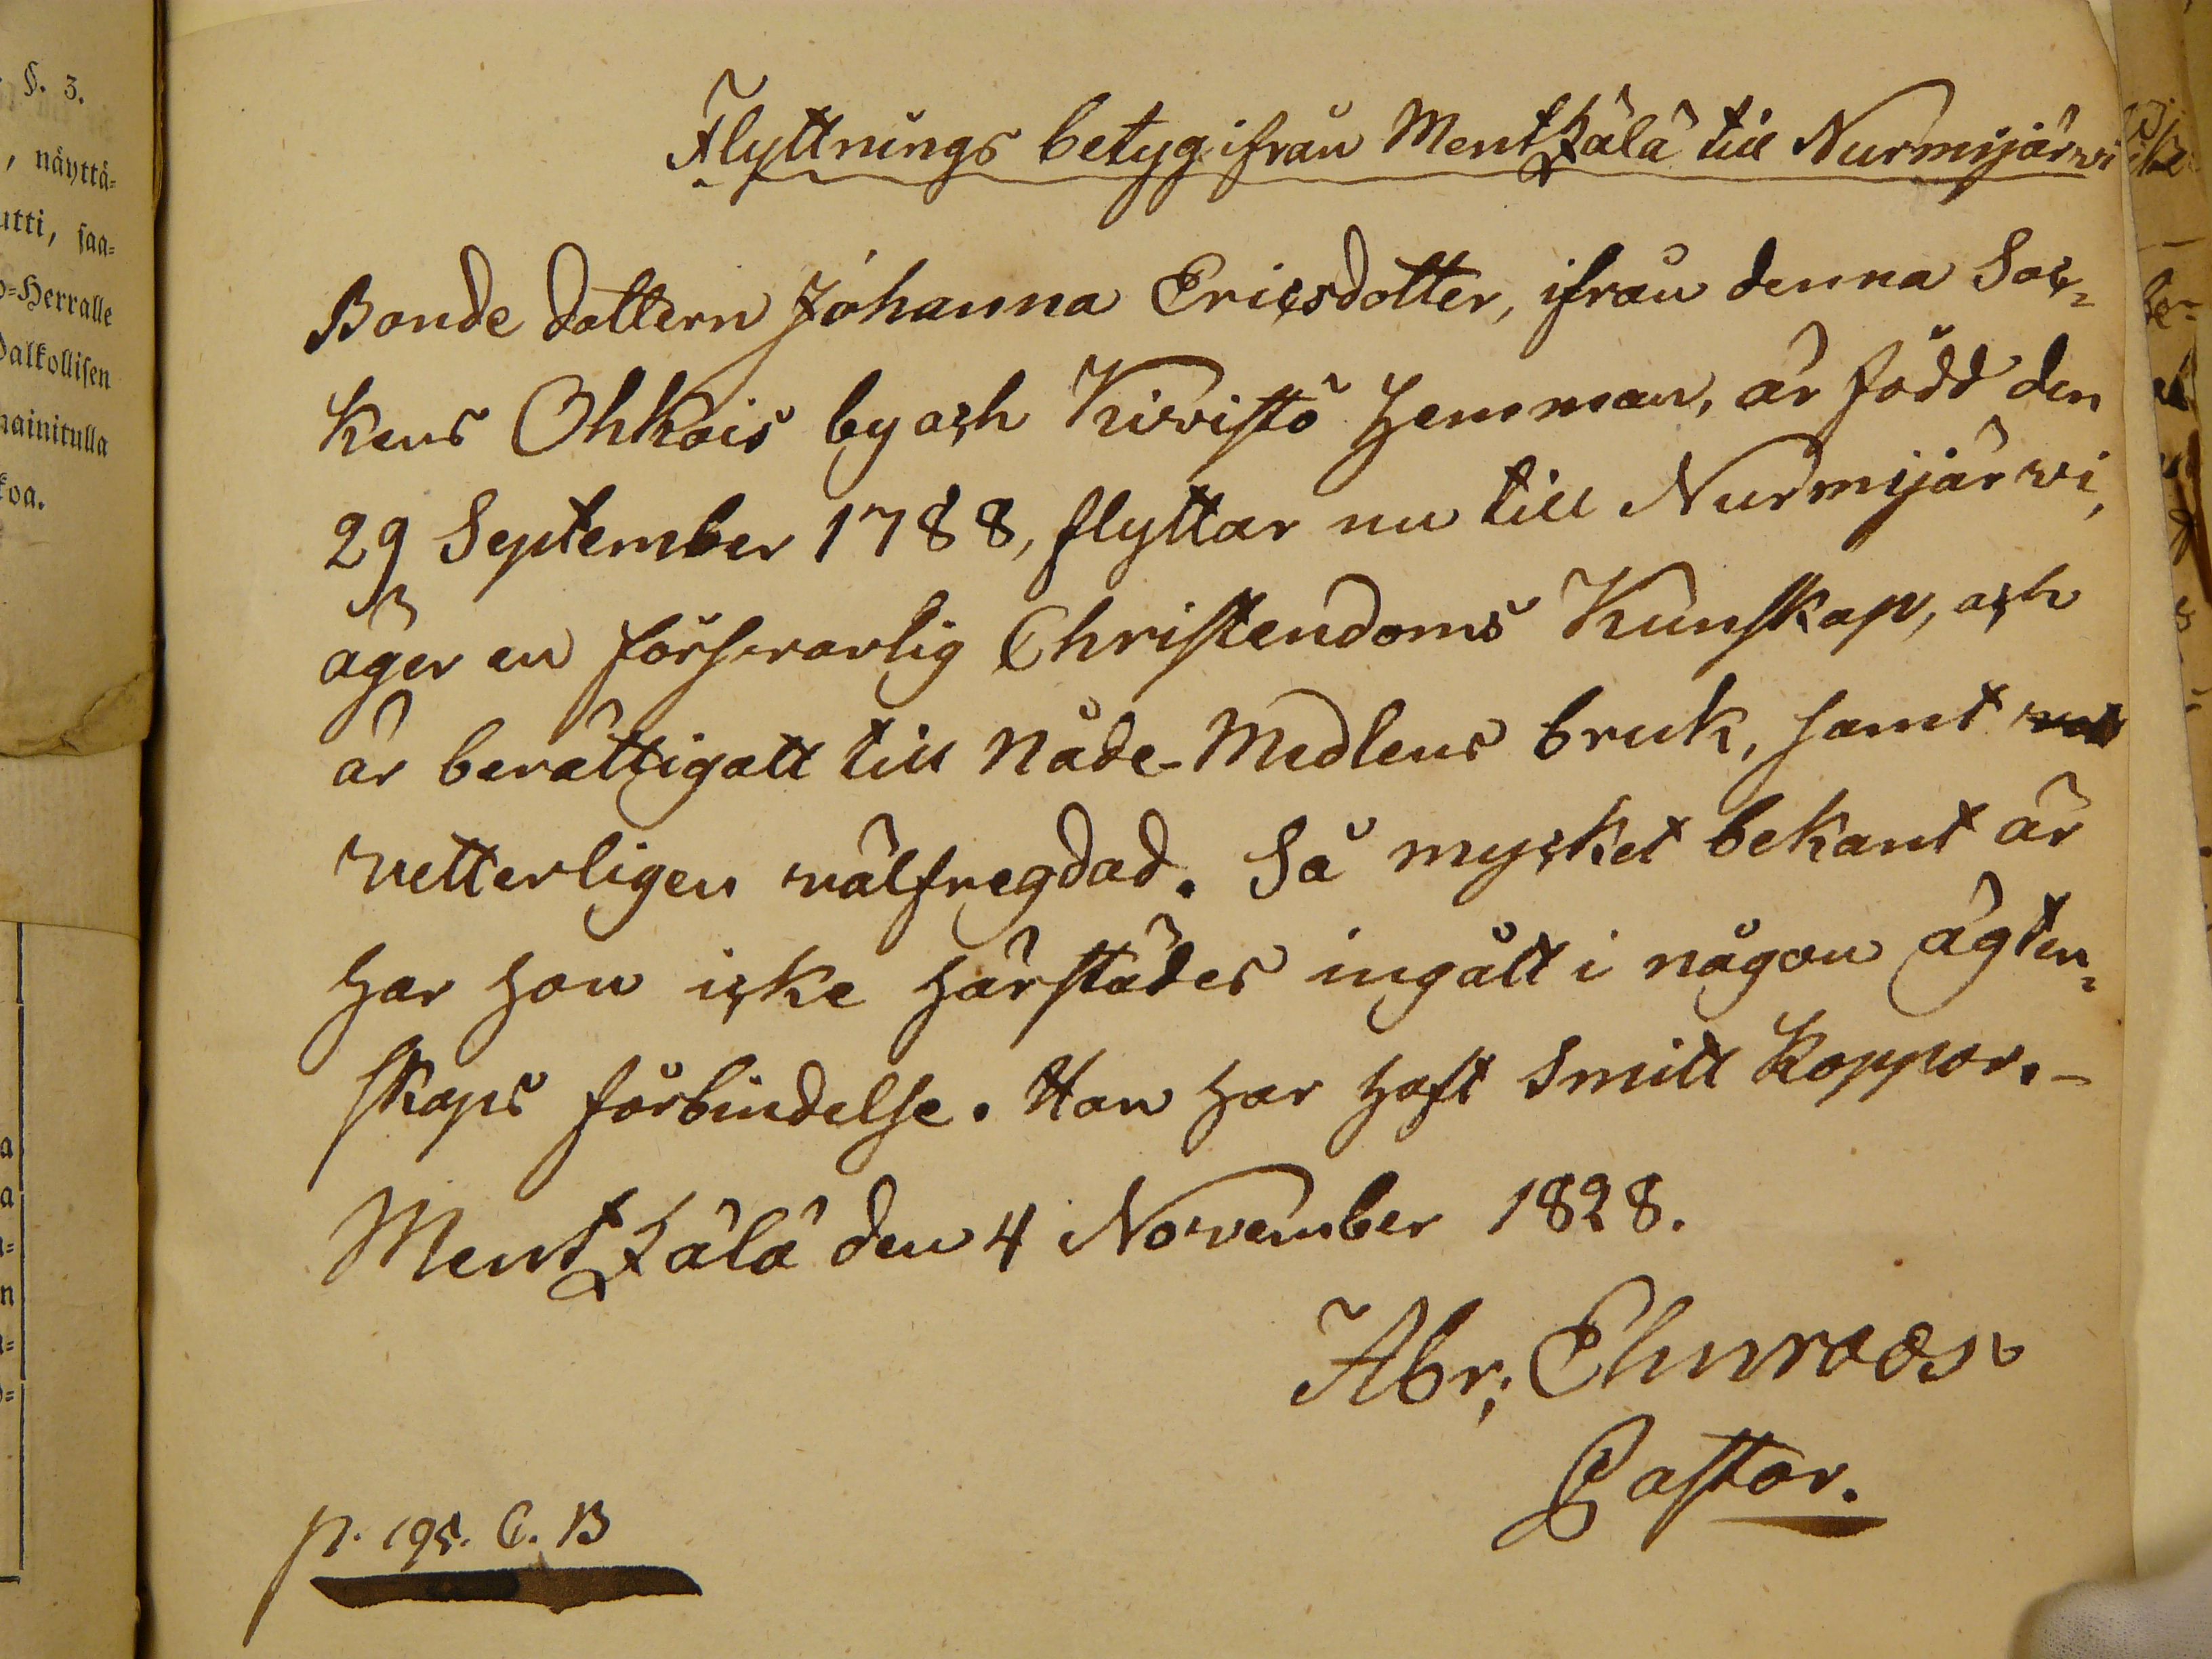 §. 3.
, näyttä=
utti, saa=
o=Herralle
dalkollisen
mainitulla
koa.
Flyttnings betyg ifrån Mentzälä till Nurmijärwi
Bonde dottern Johanna Ericsdotter, ifrån denna Soc=
kens Ohkois by och Kivistö Hemman, är född den
29 September 1788, flyttar nu till Nurmijärvi,
äger en försvarlig Christendoms Kunskap, och
är berättigatt till Nåde-Medlens bruk, samt
vetterligen välfregdad. Så mycket bekant är
har hon icke härstädes ingått i någon ägten=
skaps förbindelse. Hon har haft Smitt Koppor.-
Mentzälä den 4 November 1828.
Abr: Ehnroos
Pastor.
p. 195. C. B